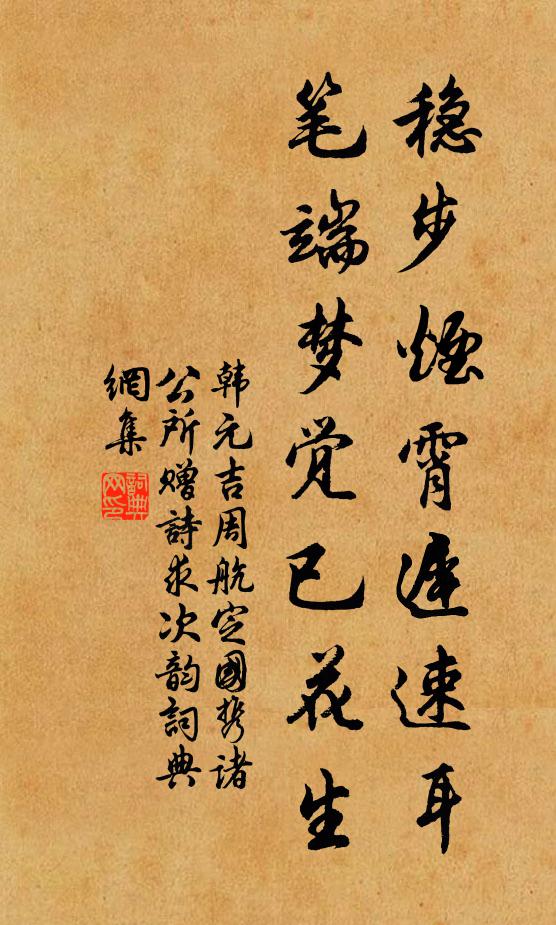 稳步煙霄遲速耳
笔端梦觉已花生
韩元吉周航定國携诸
公所赠詩求次韵詞典
網集
詞典
网印